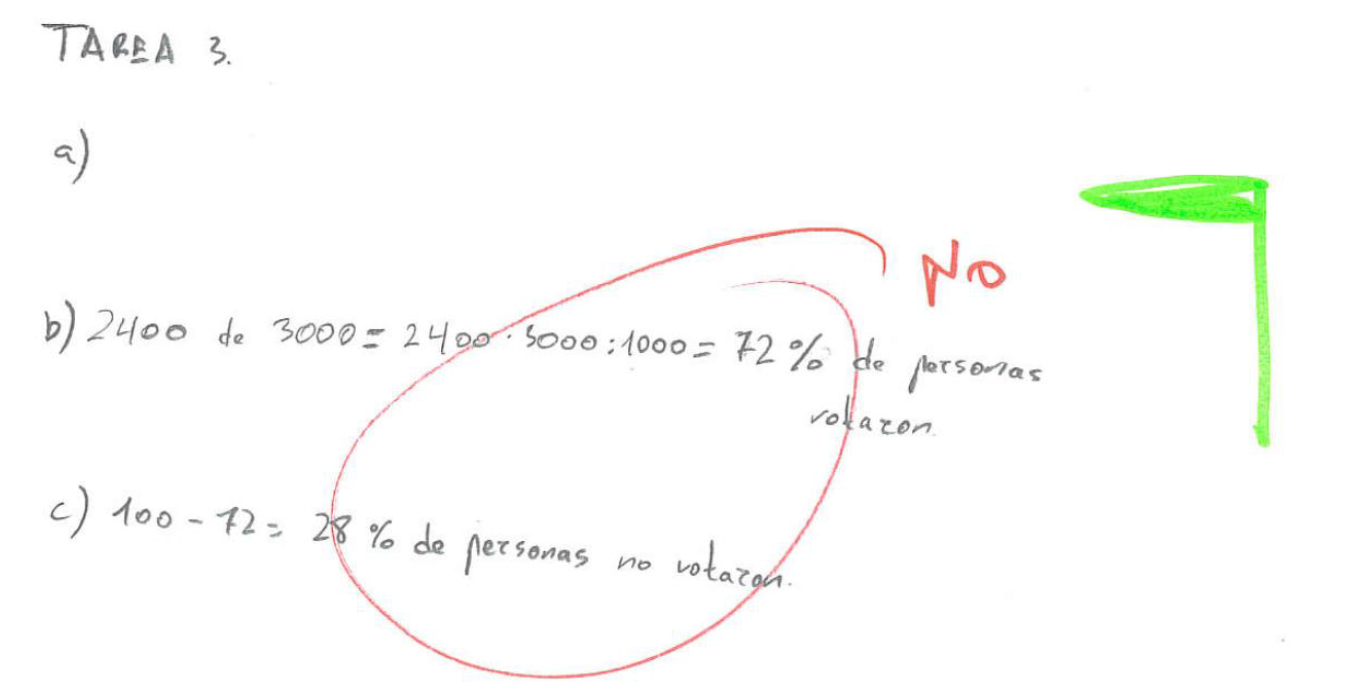 TAREA 3.
a)
NO
b) 2400 de 3000 = 2400 · 3000 : 1000 = 72 % de personas
votaron.
c) 100 - 72 = 28 % de personas no votaron.